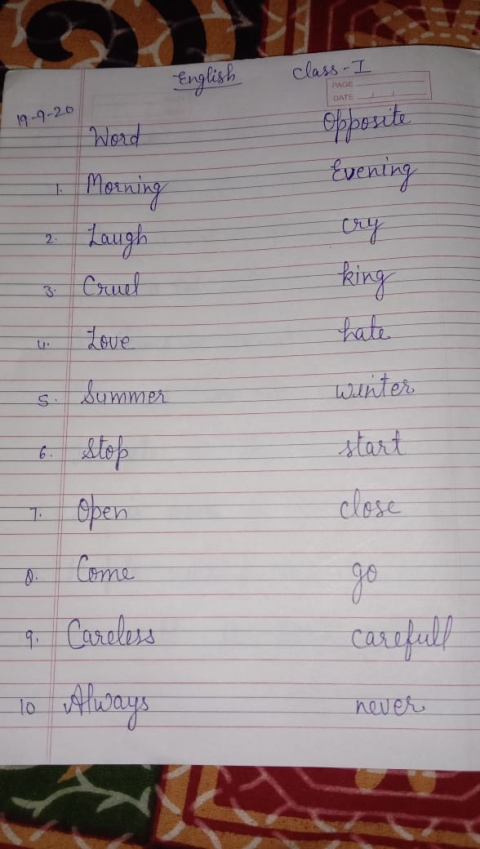 English Class-I
PAGE
DATE / /
19-9-20
Word Opposite
1. Morning Evening
2. Laugh cry
3. Cruel king
4. Love hate
5. Summer winter
6. Stop start
7. Open close
8. Come go
9. Careless carefull
10 Always never